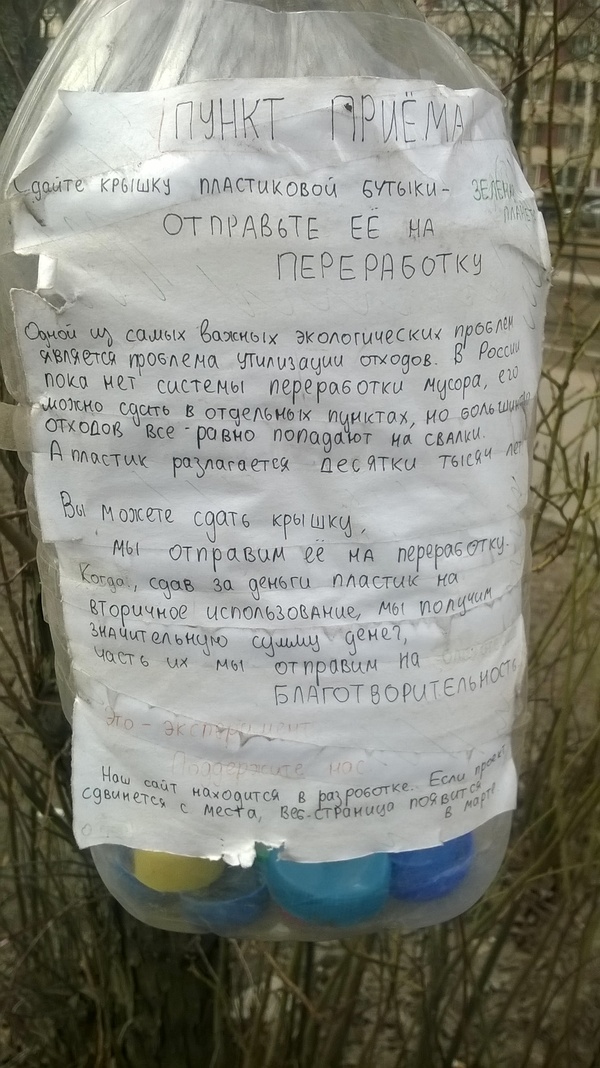 ПУНКТ ПРИЁМА
Сдайте крышку пластиковой бутыки-
ЗЕЛЕНА
ПЛАНЕТ
ОТПРАВЬТЕ ЕЁ НА
ПЕРЕРАБОТКУ
Одной из самых важных экологических проблем
является проблема утилизации отходов. В России
пока нет системы переработки мусора, его
можно сдать в отдельных пунктах, но большинство
отходов все-равно попадают на свалки.
А пластик разлагается десятки тысяч лет
Вы можете сдать крышку,
мы отправим её на переработку.
Когда, сдав за деньги пластик на
вторичное использование, мы получим
значительную сумму денег,
часть их мы отправим на
БЛАГОТВОРИТЕЛЬНОСТЬ
Это - эксперимент
Поддержите нас
Наш сайт находится в разроботке. Если проект
сдвинется с места, веб-страница появится
в марте.